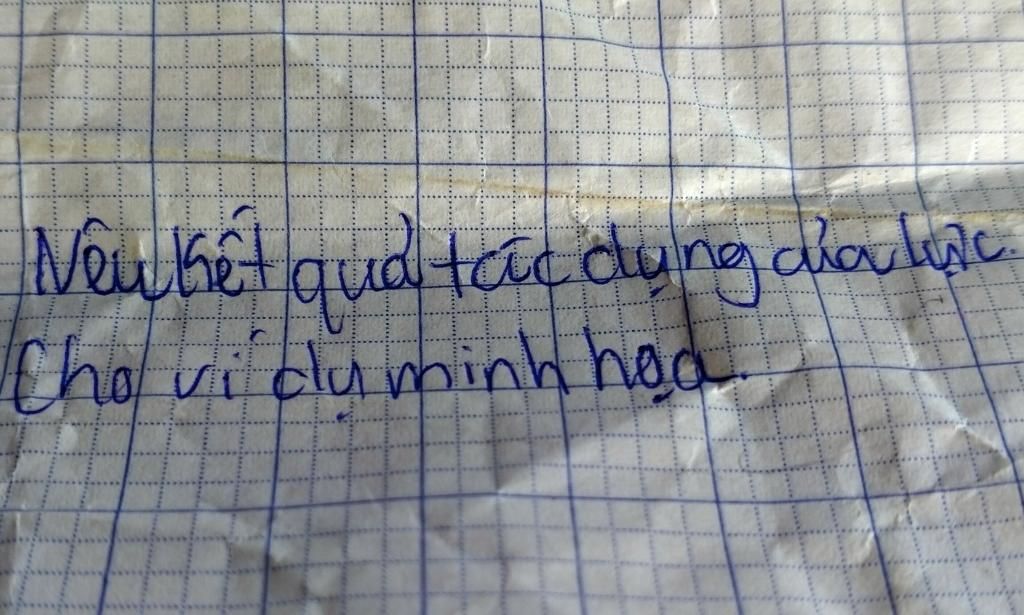 Nêu kết quả tác dụng của lực.
Cho ví dụ minh họa.